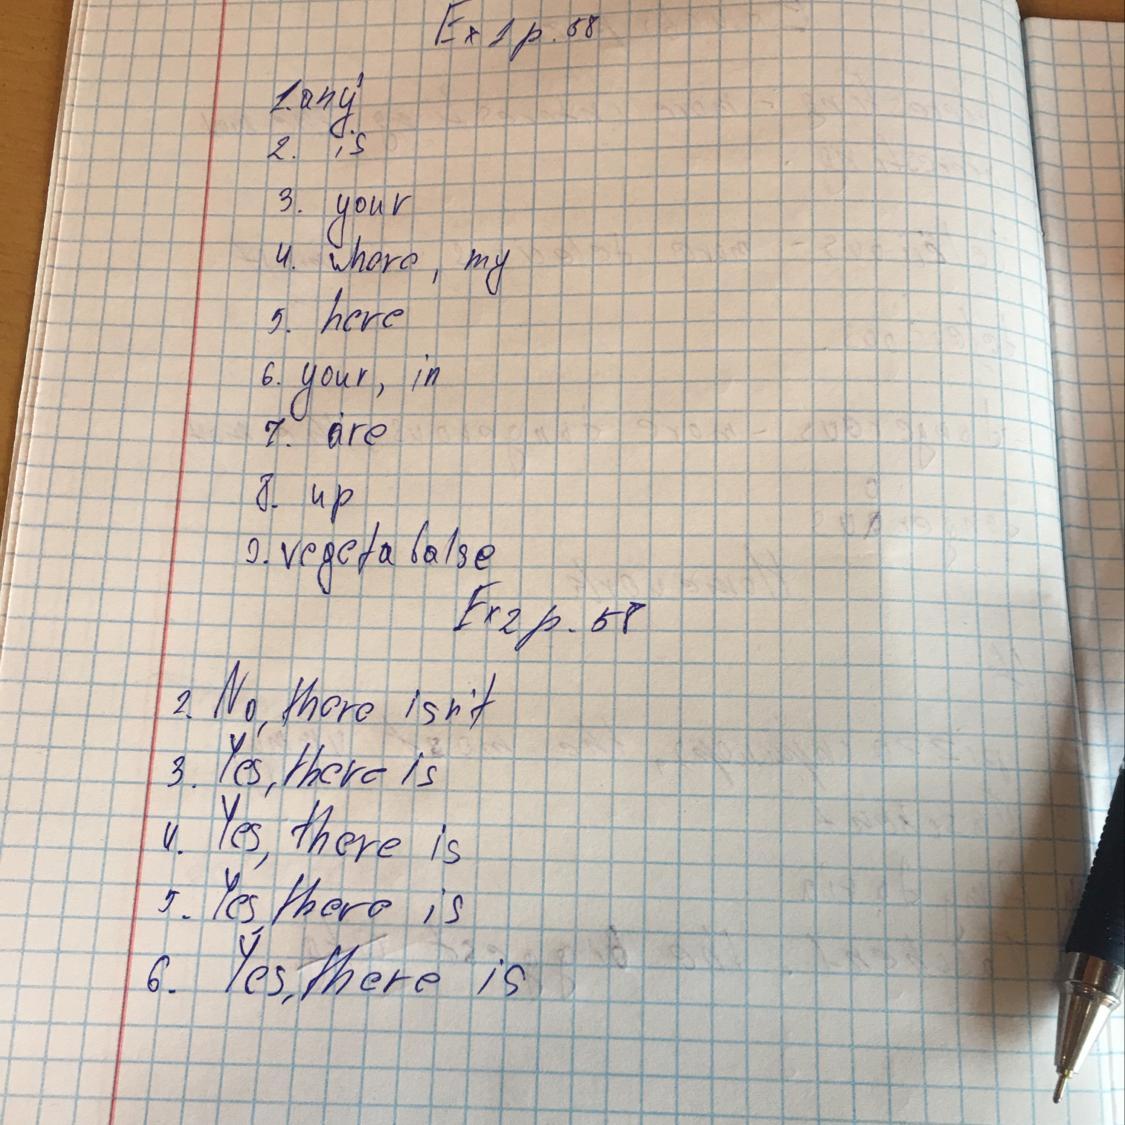 Ex 1 p. 58
1. any
2. is
3. your
4. where, my
5. here
6. your, in
7. are
8. up
9. vegetabalse
Ex 2 p. 58
2. No, there isn't
3. Yes, there is
4. Yes, there is
5. Yes, there is
6. Yes, there is